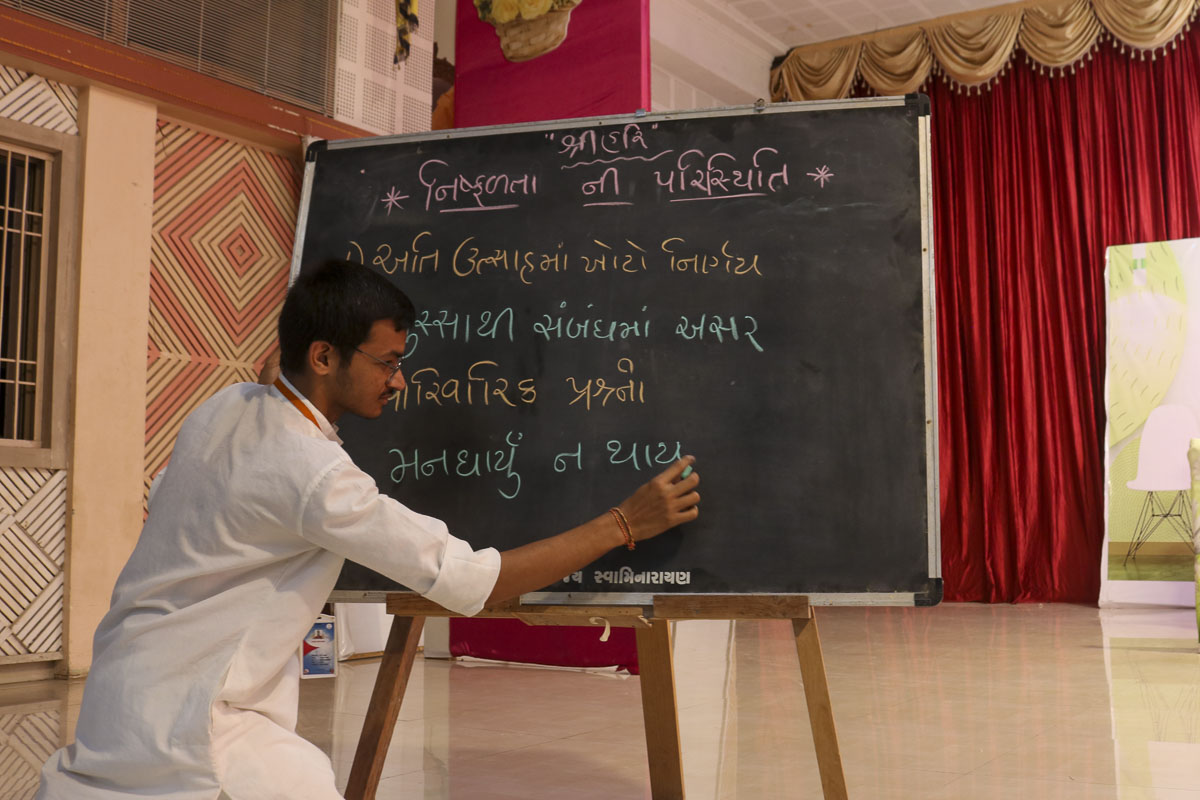 "શ્રીહરિ"
* નિષ્ફળતા ની પરિસ્થિતિ *
૧) અતિ ઉત્સાહમાં ખોટો નિર્ણય
ગુસ્સાથી સંબંધમાં અસર
પારિવારિક પ્રશ્નની
મનધાર્યું ન થાય
જય સ્વામિનારાયણ